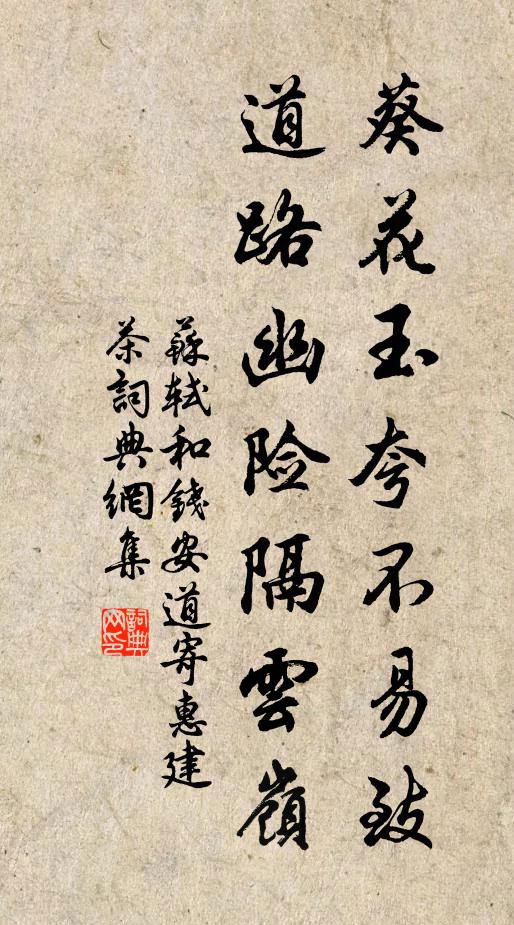 葵花玉夸不易致
道路幽险隔雲嶺
蘇軾和錢安道寄惠建
茶詞典網集
詞典网印